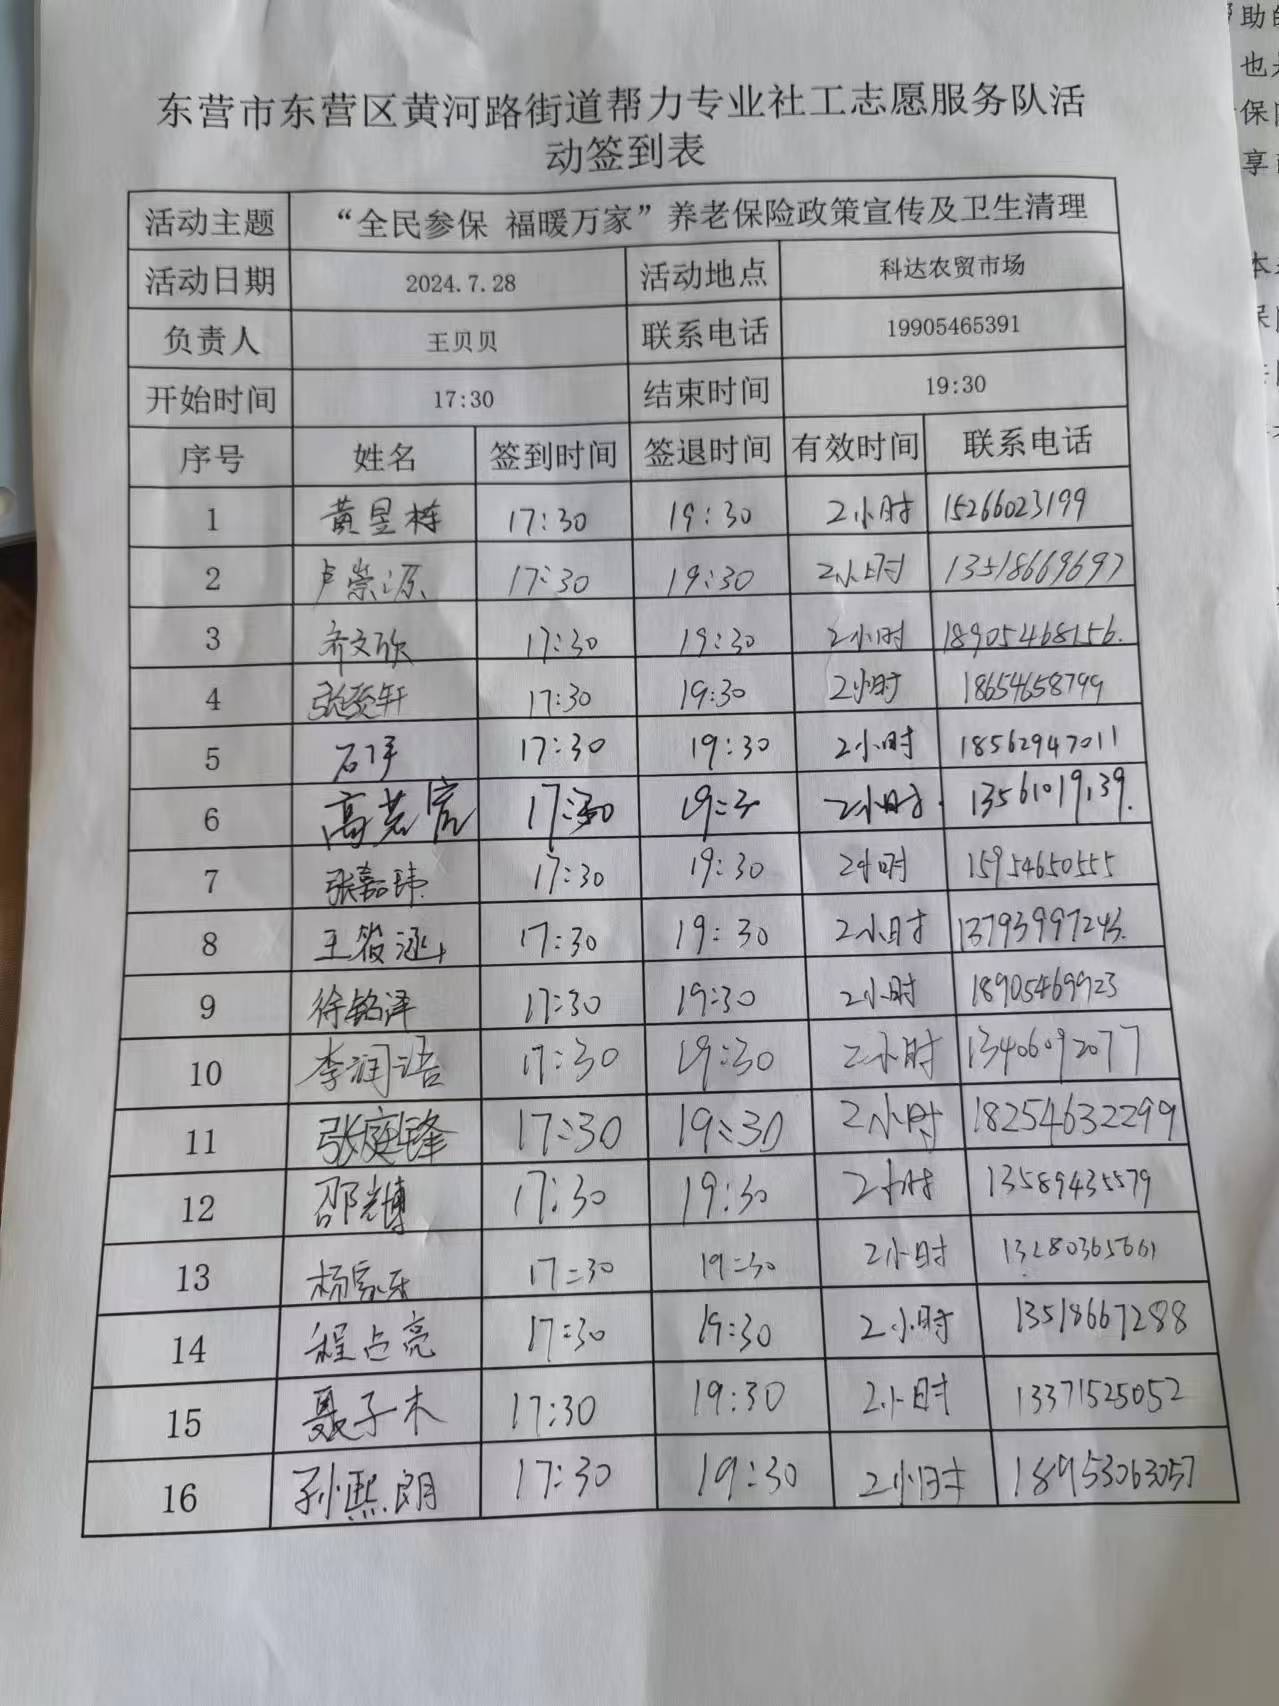 东营市东营区黄河路街道帮力专业社工志愿服务队活
动签到表
活动主题 “全民参保 福暖万家”养老保险政策宣传及卫生清理
活动日期 2024.7.28 活动地点 科达农贸市场
负责人 王贝贝 联系电话 19905465391
开始时间 17:30 结束时间 19:30
序号 姓名 签到时间 签退时间 有效时间 联系电话
1 黄昱栋 17:30 19:30 2小时 15266023199
2 卢崇源 17:30 19:30 2小时 13518669697
3 齐文欣 17:30 19:30 2小时 18905468156.
4 17:30 19:30 2小时 18654658799
5 17:30 19:30 2小时 18562947011
6 17:30 19:3 2小时. 13561019139.
7 张嘉玮 17:30 19:30 2小时 15954650555
8 王筱涵 17:30 19:30 2小时 13793997243.
9 徐铭泽 17:30 19:30 2小时 18905469923
10 李润语 17:30 19:30 2小时 13406092077
11 张庭锋 17:30 19:30 2小时 18254632299
12 邵光博 17:30 19:30 2小时 13589435579
13 杨家乐 17:30 19:30 2小时 13280365661
14 程占亮 17:30 19:30 2小时 13518667288
15 聂子木 17:30 19:30 2小时 13371525052
16 孙熙朗 17:30 19:30 2小时 18953063057